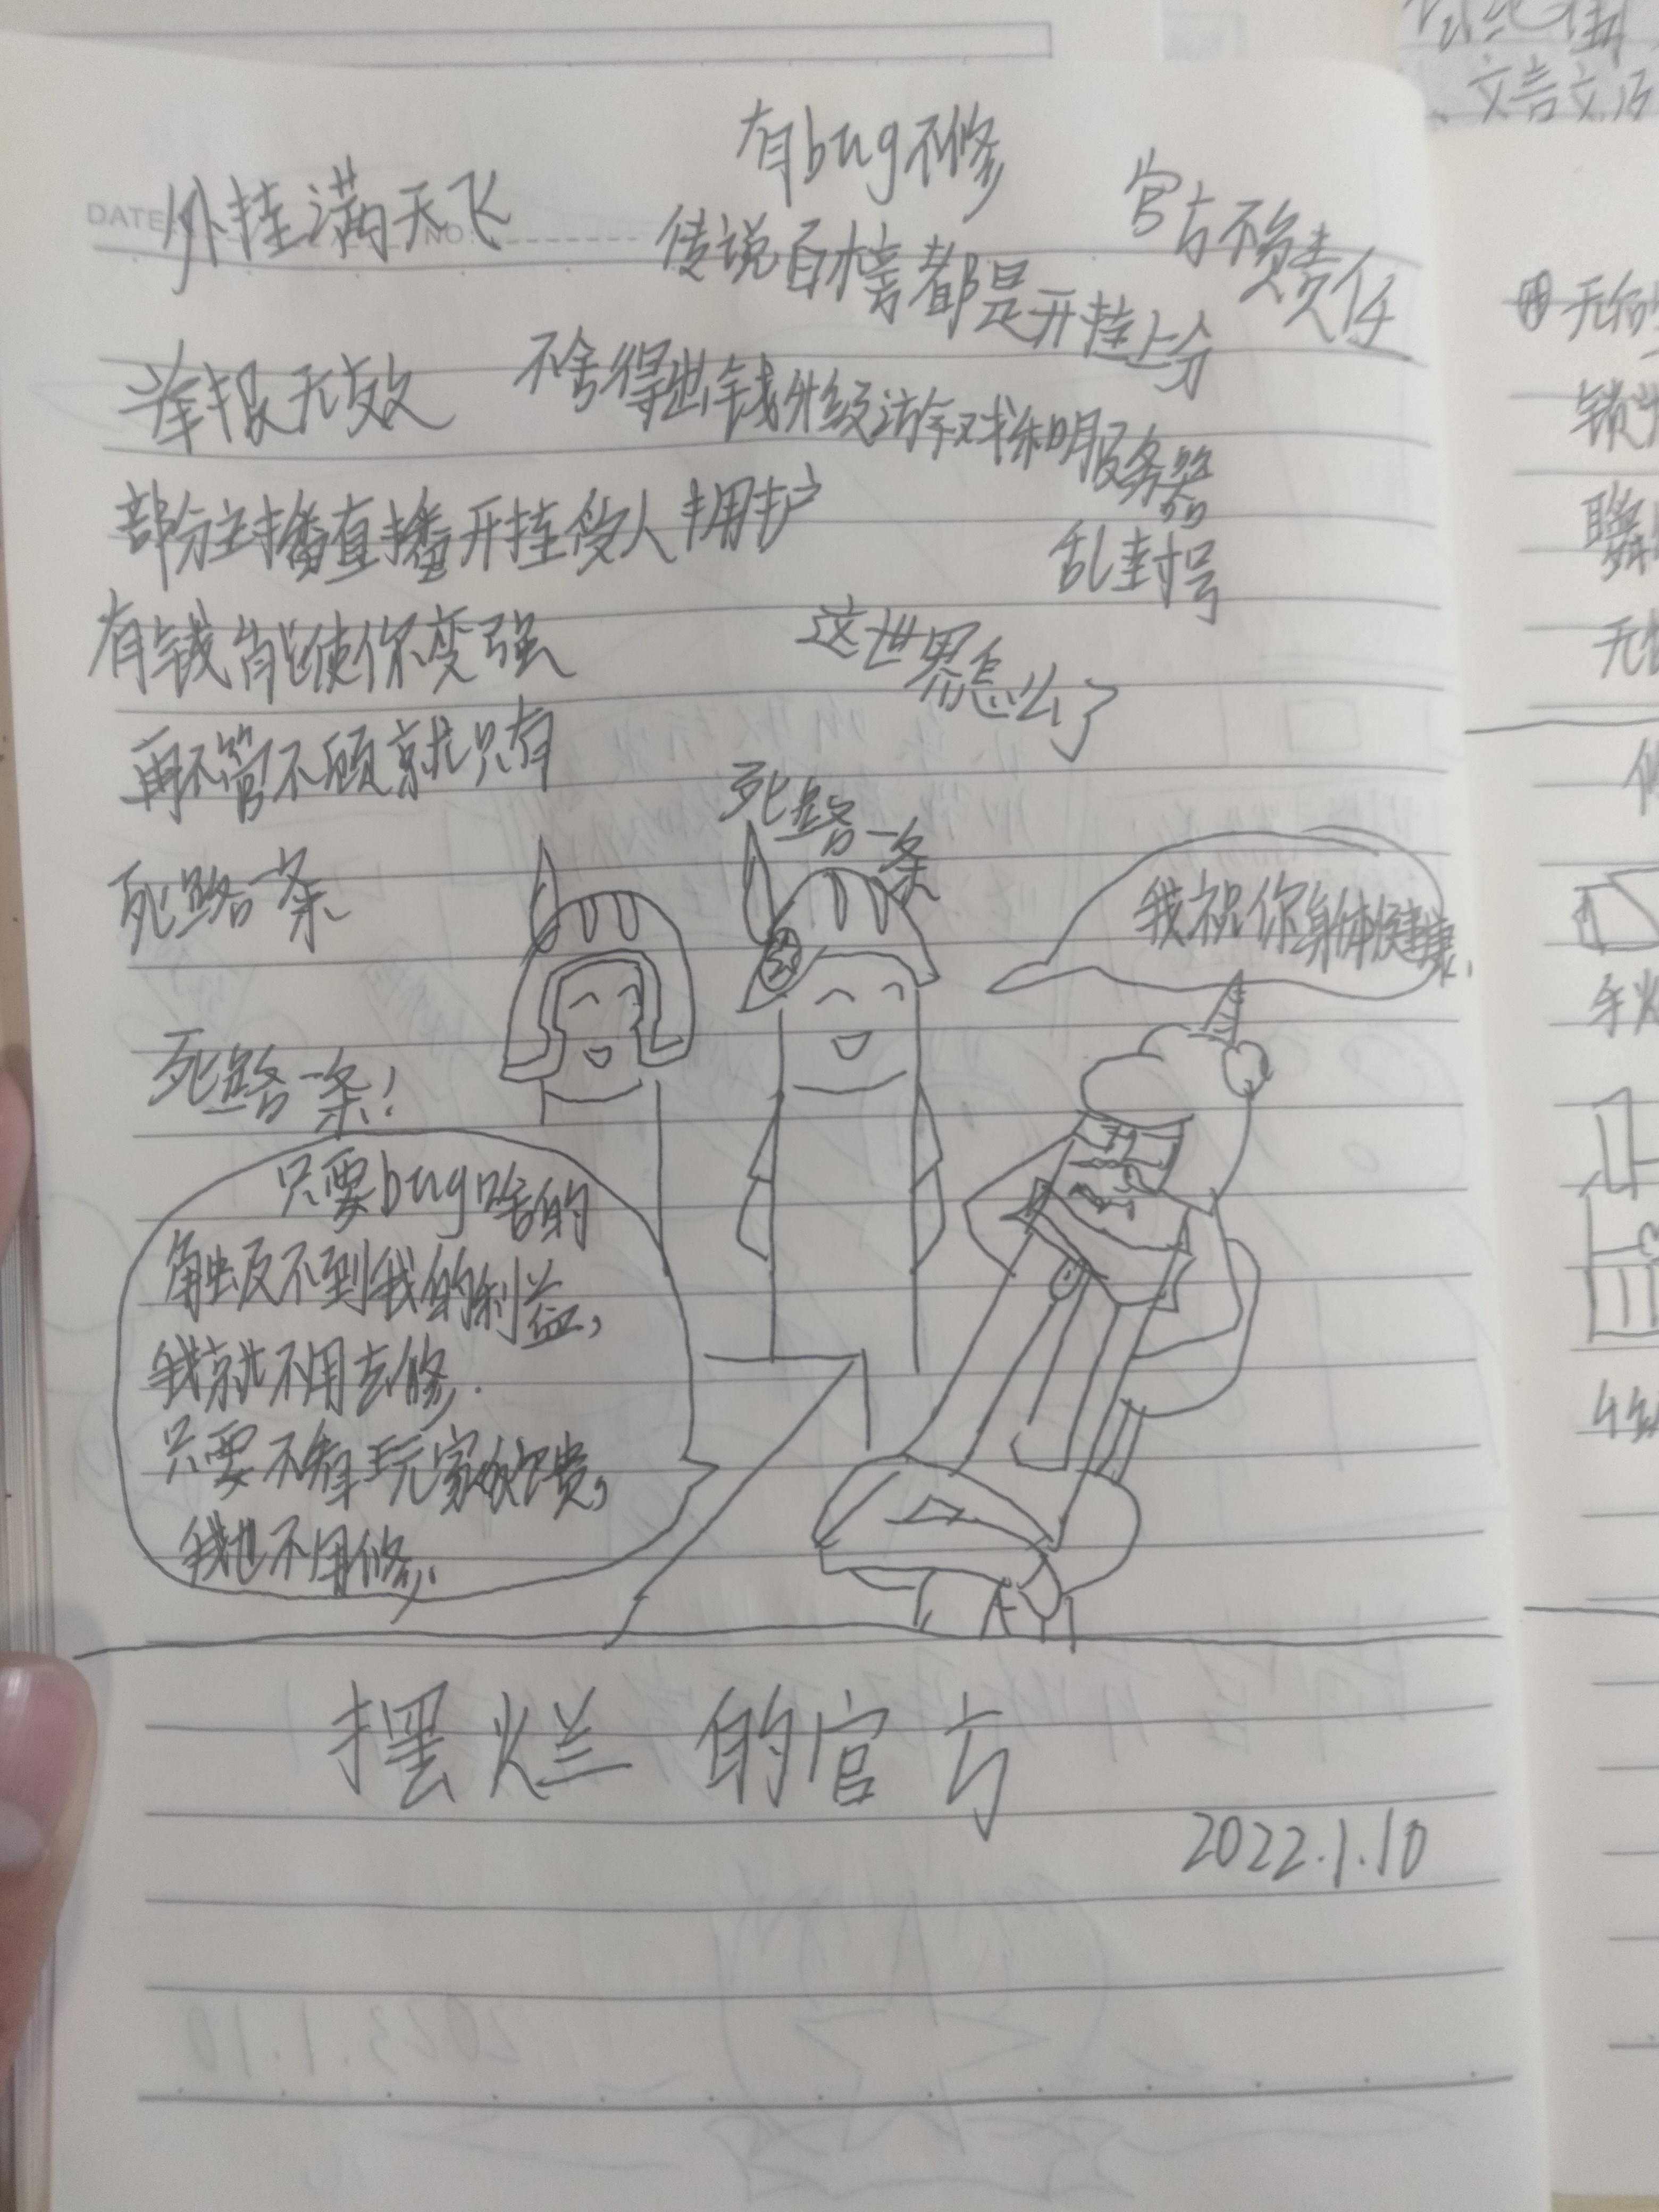 有bug不修
外挂满天飞
官方不负责任
传说百榜都是开挂上分
DATE
NO
举报无效
不舍得出钱升级游戏和服务器
部分主播直播开挂受人拥护
乱封号
有钱能使你变强
这世界怎么了
再不管不顾就只有
死路一条
死路一条
我祝你身体健康.
死路一条!
只要bug啥的
触及不到我的利益,
我就不用去修.
只要不有玩家
我也不用修.
摆烂的官方
2022.1.10
文言文
无
锁
联
无